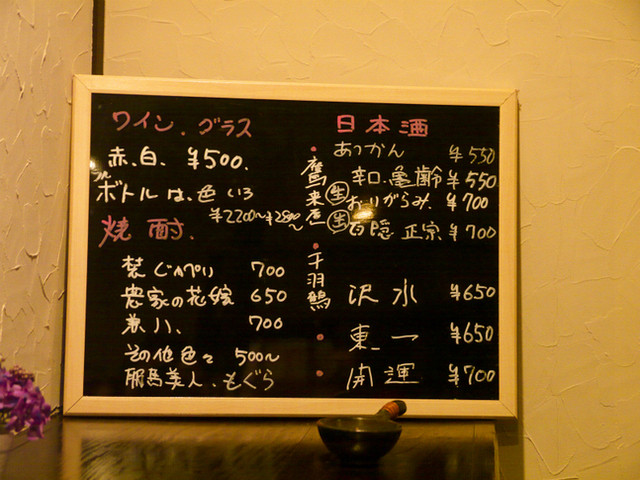 ワイン.グラス
赤.白. ¥500.
フル
ボトルは.色いろ
¥2200〜¥2800〜
焼酎.
焚じゃべり 700
農家の花嫁 650
兼八、 700
その他色々 500〜
服馬美人.もぐら
日本酒
あつかん ¥550
鷹来屋
辛口.亀齢 ¥550
生 おりがらみ. ¥700
生 白隠正宗 ¥700
千羽鶴
沢水 ¥650
東一 ¥650
開運 ¥700